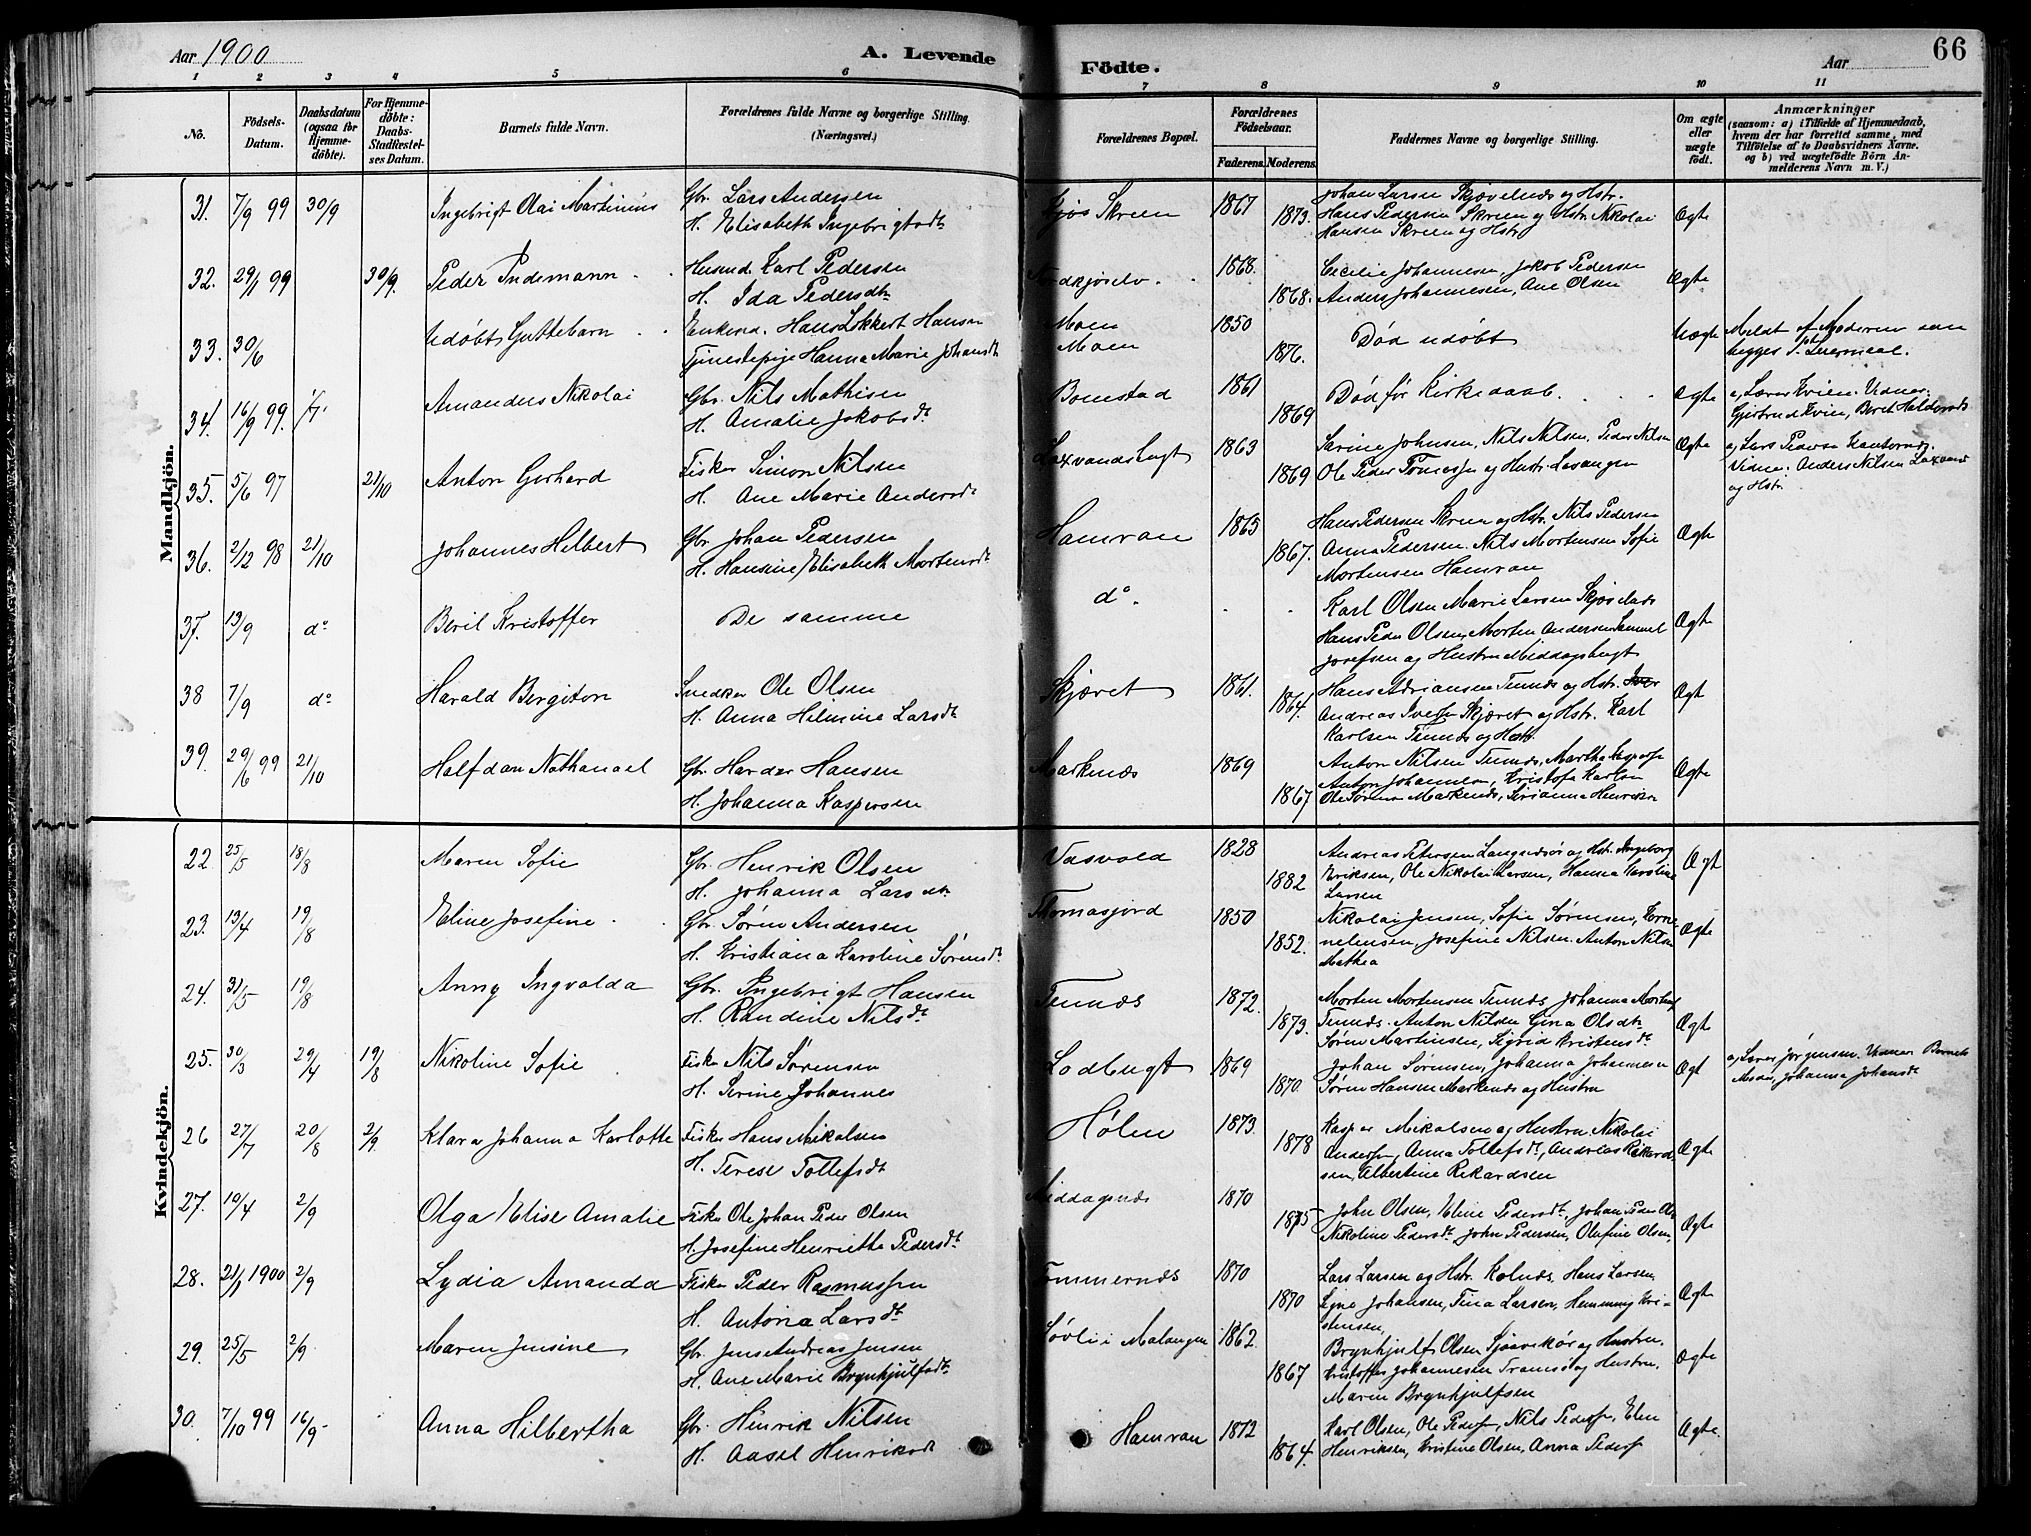 Aar 1900
A. Levende
Födte.
Aar
66
1 2 3 4 5 6 7 8 9 10 11
No.
Födsels-
Datum.
Daabsdatum
(ogsaa for
Hjemme-
döbte).
For Hjemme-
döbte:
Daabs-
Stadfæstel-
ses Datum.
Barnets fulde Navn.
Forældrenes fulde Navne og borgerlige Stilling.
(Næringsvei.)
Forældrenes Bopæl.
Forældrenes
Födselsaar.
Faderens. Moderens.
Faddernes Navne og borgerlige Stilling.
Om ægte
eller
uægte
födt.
Anmærkninger
(saasom: a) i Tilfælde af Hjemmedaab,
hvem der har forrettet samme, med
Tilföielse af to Daabsvidners Navne.
og b) ved uægtefödte Börn An-
melderens Navn m. V.)
Mandkjön.
31. 7/9 99 30/9 Ingebrigt Olai Martinius Gbr. Lars Andersen
H. Elisabeth Ingebrigtsdt
Skreen 1867 1873.
Johan Larsen Skjævelnes og Hstr.
Hans Pedersen Skreen og Hstr. Nikolai
Hansen Skreen og Hstr
Ægte
32. 29/1 99 30/9. Peder Indemann Husmd. Karl Pedersen
H. Ida Pedersdt.
1868. 1868.
Cecilie Johannesen, Jakob Pedersen
Anders Johannesen, Ane Olsen
Ægte
33. 30/6 Udøbt Guttebarn Enkemd. Hans Lokkert Hansen
Tjenestepige Hanna Marie Johansdt
Moen
Moen
1850 1876.
Død udøbt
Uægte
Meldt af Moderen som
34. 16/9 99. Amandus Nikolai Gbr. Nils Mathisen
H. Amalie Jakobsdt
Bomstad 1861 1869
Død før Kirkedaab.
Ægte
35. 5/6 97 21/10 Anton Gerhard Fisker Simon Nilsen
H. Ane Marie Andersdt
Laxvandsbugt 1863 1869
Sarine Johnsen, Nils Nilsen, Peder Nilsen
Ole Peder Tomassen og Hustr. Lavangen
Ægte
Vidner: Anders Nilsen Laxvand
og Hstr.
36. 2/12 98 21/10 Johannes Hilbert Gbr. Johan Pedersen
H. Hansine Elisabeth Mortensdt.
Hamvan 1865 1867.
Hans Pedersen Skreen og Hstr. Nils Pedersen
Anna Pedersen. Nils Mortensen Sofie
Mortensen Hamvan
Ægte
37. 13/9 do Beril Kristoffer De samme
do.
Karl Olsen Marie Larsen
Hans Peder Olsen, Morten Andersen Samuel
Josefsen og Hustru Middagsbugt
Ægte
38 7/9 do Harald Bergiton Snedker Ole Olsen
H. Anna Hilmine Larsdt
Skjæret 1861. 1864.
Hans Adriansen Tennes og Hstr. Iver
Andreas Iversen Skjæret og Hstr. Karl
Karlsen Tennes og Hstr.
Ægte
39. 29/6 99 21/10 Halfdan Nathanael Gbr. Harder Hansen
H. Johanna Kaspersen
Markenes 1869 1867
Anton Nilsen Tennes, Martha
Anton Johannesen, Kristofa Karlsen
Ole Sørensen Markenes, Serianna Henriksen
Ægte
Kvindekjön.
22. 25/5 18/8 Maren Sofie Gbr. Henrik Olsen
H. Johanna Larsdt.
Vasvold 1828 1882
Andreas Petersen og Hstr. Ingeborg
Eriksen, Ole Nikolai Larsen, Hanna Karoline
Larsen
Ægt
23. 13/4 19/8 Eline Josefine Gbr. Søren Andersen
H. Kristiana Karoline Sørensdt
Thomasjord 1850 1852.
Nikolai Jensen, Sofie Sørensen, Korne-
neliusen, Josefine Nilsen. Anton Nilsen
Mathea
Ægte
24. 31/5 19/8 Anny Ingvalda Gbr. Ingebrigt Hansen
H. Randine Nilsdt
Tennes 1872. 1873.
Morten Mortensen Tennes, Johanna
Tennes. Anton Nilsen Gina Olsdt.
Søren Martinsen, Sigrid Kristensdt
Ægt
25. 30/3 29/4 19/8 Nikoline Sofie Fisker Nils Sørensen
H. Serine Johannes
Lodbugt 1869 1870
Johan Sørensen, Johanna Johannesen
Søren Hansen Markenes og Hustru
Ægt
a, Lærer Jørgensen. Vidner Barnets
26 27/7 20/8 2/9. Klara Johanna Karlotte Fisker Hans Mikalsen
H. Terese Tollefsdt
Hølen 1873. 1878
Kasper Mikalsen og Hustru. Nikolai
Andersen, Anna Tollefsdt, Andreas Rikard-
sen, Albertine Rikardsen
Ægte
27. 19/4 2/9 Olga Elise Amalie Fisker Ole Johan Peder Olsen
H. Josefine Henriette Pedersdt.
Middagsnes 1870 1875
John Olsen, Eline Pedersdt, Johan Peder
Nikoline Pedersdt. John Pedersen, Olufine Olsen,
Ægte
28. 21/1 1900 2/9 Lydia Amanda Fisker Peder Rasmussen
H. Antona Larsdt
Tømmernes 1870 1870
Lars Larsen og Hstr. Kolnes, Hans Larsen
Signe Johansen, Tina Larsen, Hemming Kri-
stensen,
Ægte
29. 25/5 2/9 Maren Jensine Gbr. Jens Andreas Jensen
H. Ane Marie Brynhjulfsdt.
Søvli i Malangen 1862. 1867
Brynhjulf Olsen og Hustru.
Kristoffer Johannesen Tromsø og Hustru.
Maren Brynhjulfsen
Ægte
30. 7/10 99 16/9 Anna Hilbertha Gbr. Henrik Nilsen
H. Aasel Henriksdt
Hamvan 1872 1864.
Karl Olsen, Ole Peders, Nils Peders, Elen
Henriksen, Kristine Olsen, Anna Peders
Ægte.